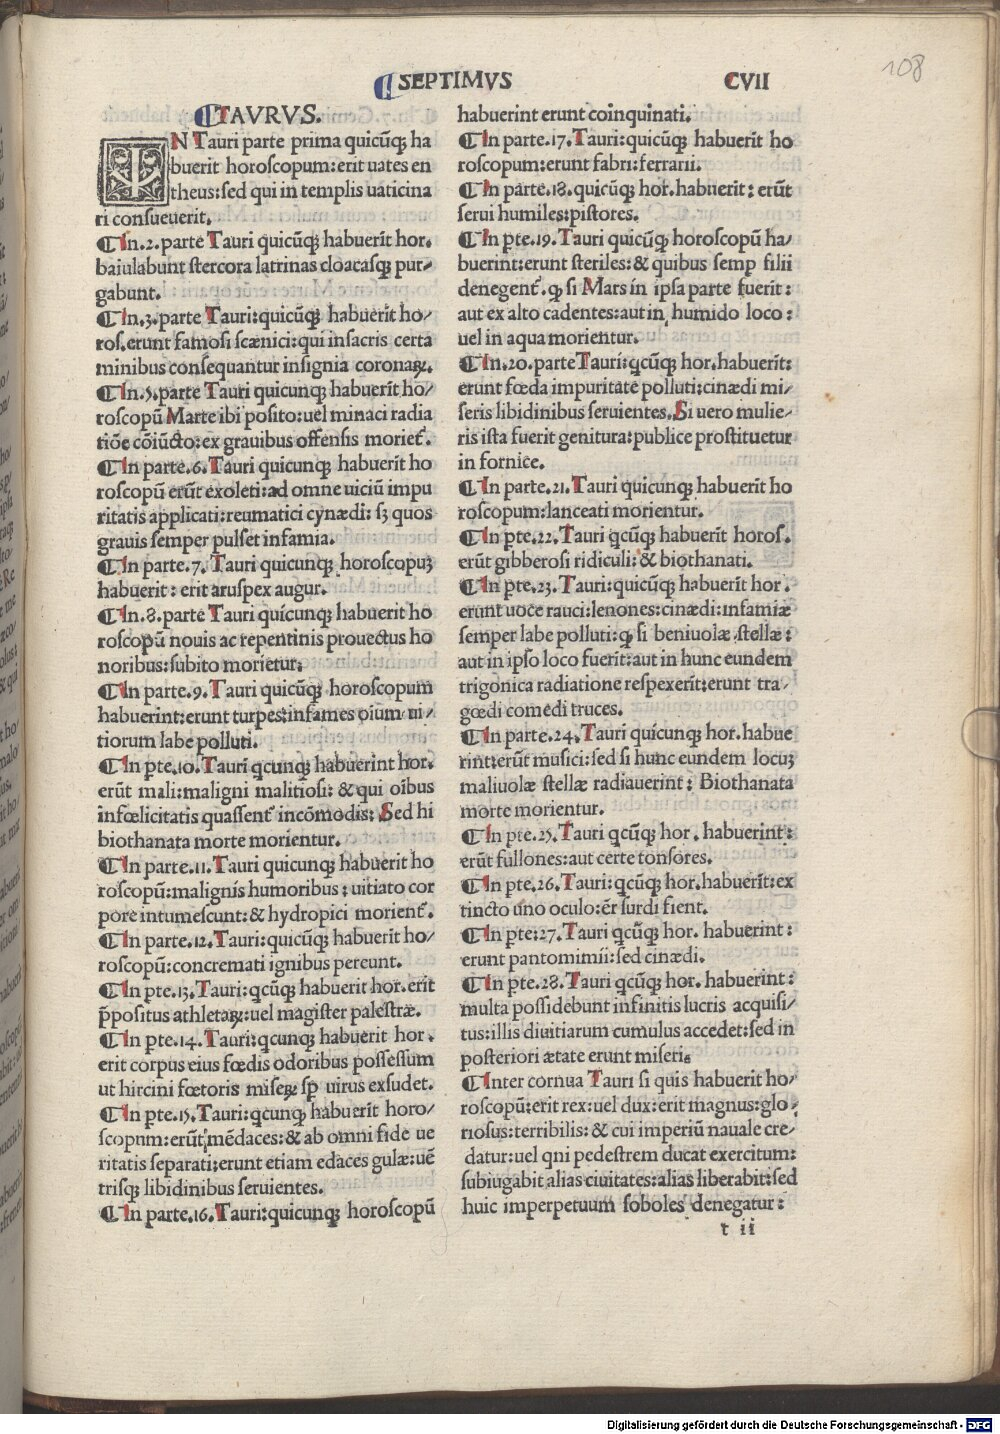 108
¶SEPTIMVS
CVII
¶TAVRVS.
IN Tauri parte prima quicūqꝫ ha
buerit horoſcopum:erit uates en
theus:ſed qui in templis uaticina
ri conſueuerit.
¶In.2.parte Tauri quicūqꝫ habuerīt hor.
baiulabunt ſtercora latrinas cloacaſqꝫ pur/
gabunt.
¶In.3.parte Tauri:quicūqꝫ habuerīt ho/
roſ.erunt famoſi ſcænici:qui inſacris certa
minibus conſequantur inſignia coronaꝝ.
¶In.5.parte Tauri quicunqꝫ habuerīt ho/
roſcopū Marte ibi poſito:uel minaci radia
tiōe cōiūcto:ex grauibus offenſis morieť.
¶In parte.6.Tauri quicunqꝫ habuerīt ho
roſcopū erūt exoleti:ad omne uiciū impu
ritatis applicati:reumatici cynædi: ſꝫ quos
grauis ſemper pulſet infamia.
¶In parte.7. Tauri quicunqꝫ horoſcopuꝫ
habuerit: erit aruſpex augur.
¶In.8.parte Tauri quicunqꝫ habuerit ho
roſcopū nouis ac repentinis prouectus ho
noribus:ſubito morietur.
¶In parte.9.Tauri quicūqꝫ horoſcopum
habuerint:erunt turpes:infames oīum ui/
tiorum labe polluti.
¶In pte.10.Tauri qcunqꝫ habuerint hor.
erūt mali:maligni malitioſi: & qui oību̇s
infœlicitatis quaſſenť incōmodis: Sed hi
biothanata morte morientur.
¶In parte.11.Tauri quicunqꝫ habuerīt ho
roſcopū:malignis humoribus: uitiato cor
pore intumeſcunt:& hydropici morienť.
¶In parte.12.Tauri:quicūqꝫ habuerīt ho/
roſcopū:concremati ignibus pereunt.
¶In pte.13.Tauri:qcūqꝫ habuerit hor.erit
p̄poſitus athletaꝝ:uel magiſter palęſtræ.
¶In pte.14.Tauri:qcunqꝫ habuerīt hor.
erit corpus eius fœdis odoribus poſſeſſum
ut hircini fœtoris miſeꝝ ſꝑ uirus exſudet.
¶In pte.15.Tauri:qcunqꝫ habuerīt horo/
ſcopnm:erūt mēdaces:& ab omni fide ue
ritatis ſeparati:erunt etiam edaces gulæ:uē
triſqꝫ libidinibus ſeruientes.
¶In parte.16.Tauri:quicunqꝫ horoſcopū
habuerint erunt coinquinati.
¶In parte.17.Tauri:quicūqꝫ habuerīt ho
roſcopum:erunt fabri:ferrarii.
¶In parte.18.quicūqꝫ hor.habuerīt: erūt
ſerui humiles:piſtores.
¶In pte.19.Tauri quicūqꝫ horoſcopū ha/
buerint:erunt ſteriles:& quibus ſemp filii
denegenť. qꝫ ſi Mars in ipſa parte fuerit:
aut ex alto cadentes:aut in humido loco:
uel in aqua morientur.
¶In.20.parte Tauri:qcūqꝫ hor.habuerīt:
erunt fœda impuritate polluti:cinædi mi/
ſeris libidinibus ſeruientes.Si uero mulie/
ris iſta fuerit genitura:publice proſtituetur
in fornice.
¶In parte.21.Tauri quicunqꝫ habuerīt ho
roſcopum:lanceati morientur.
¶In pte.22.Tauri qcūqꝫ habuerīt horoſ.
erūt gibberoſi ridiculi:& biothanati.
¶In pte.23.Tauri:quicūqꝫ habuerīt hor.
erunt uoce rauci:lenones:cinædi:infamiæ
ſemper labe polluti:qꝫ ſi beniuolæ ſtellæ:
aut in ipſo loco fuerit:aut in hunc eundem
trigonica radiatione reſpexerīt:erunt tra/
gœdi comedi truces.
¶In parte.24.Tauri quicunqꝫ hor.habue
rint:erūt muſici:ſed ſi hunc eundem locuꝫ
maliuolæ ſtellæ radiauerint: Biothanata
morte morientur.
¶In pte.25.Tauri qcūqꝫ hor. habuerint:
erūt fullones:aut certe tonſores.
¶In pte.26.Tauri:qcūqꝫ hor.habuerīt:ex
tincto uno oculo:ēr ſurdi fient.
¶In pte:27.Tauri qcūqꝫ hor. habuerint:
erunt pantomimii:ſed cinædi.
¶In pte.28.Tauri qcūqꝫ hor. habuerint:
multa poſſidebunt infinitis lucris acquiſi/
tus:illis diuitiarum cumulus accedet:ſed in
poſteriori ætate erunt miſeri.
¶Inter cornua Tauri ſi quis habuerit ho/
roſcopū:erit rex:uel dux:erit magnus:glo/
rioſus:terribilis:& cui imperiū nauale cre/
datur:uel qni pedeſtrem ducat exercitum:
ſubiugabit alias ciuitates:alias liberabit:ſed
huic imperpetuum ſoboles denegatur:
t ii
Digitalisierung gefördert durch die Deutsche Forschungsgemeinschaft - DFG